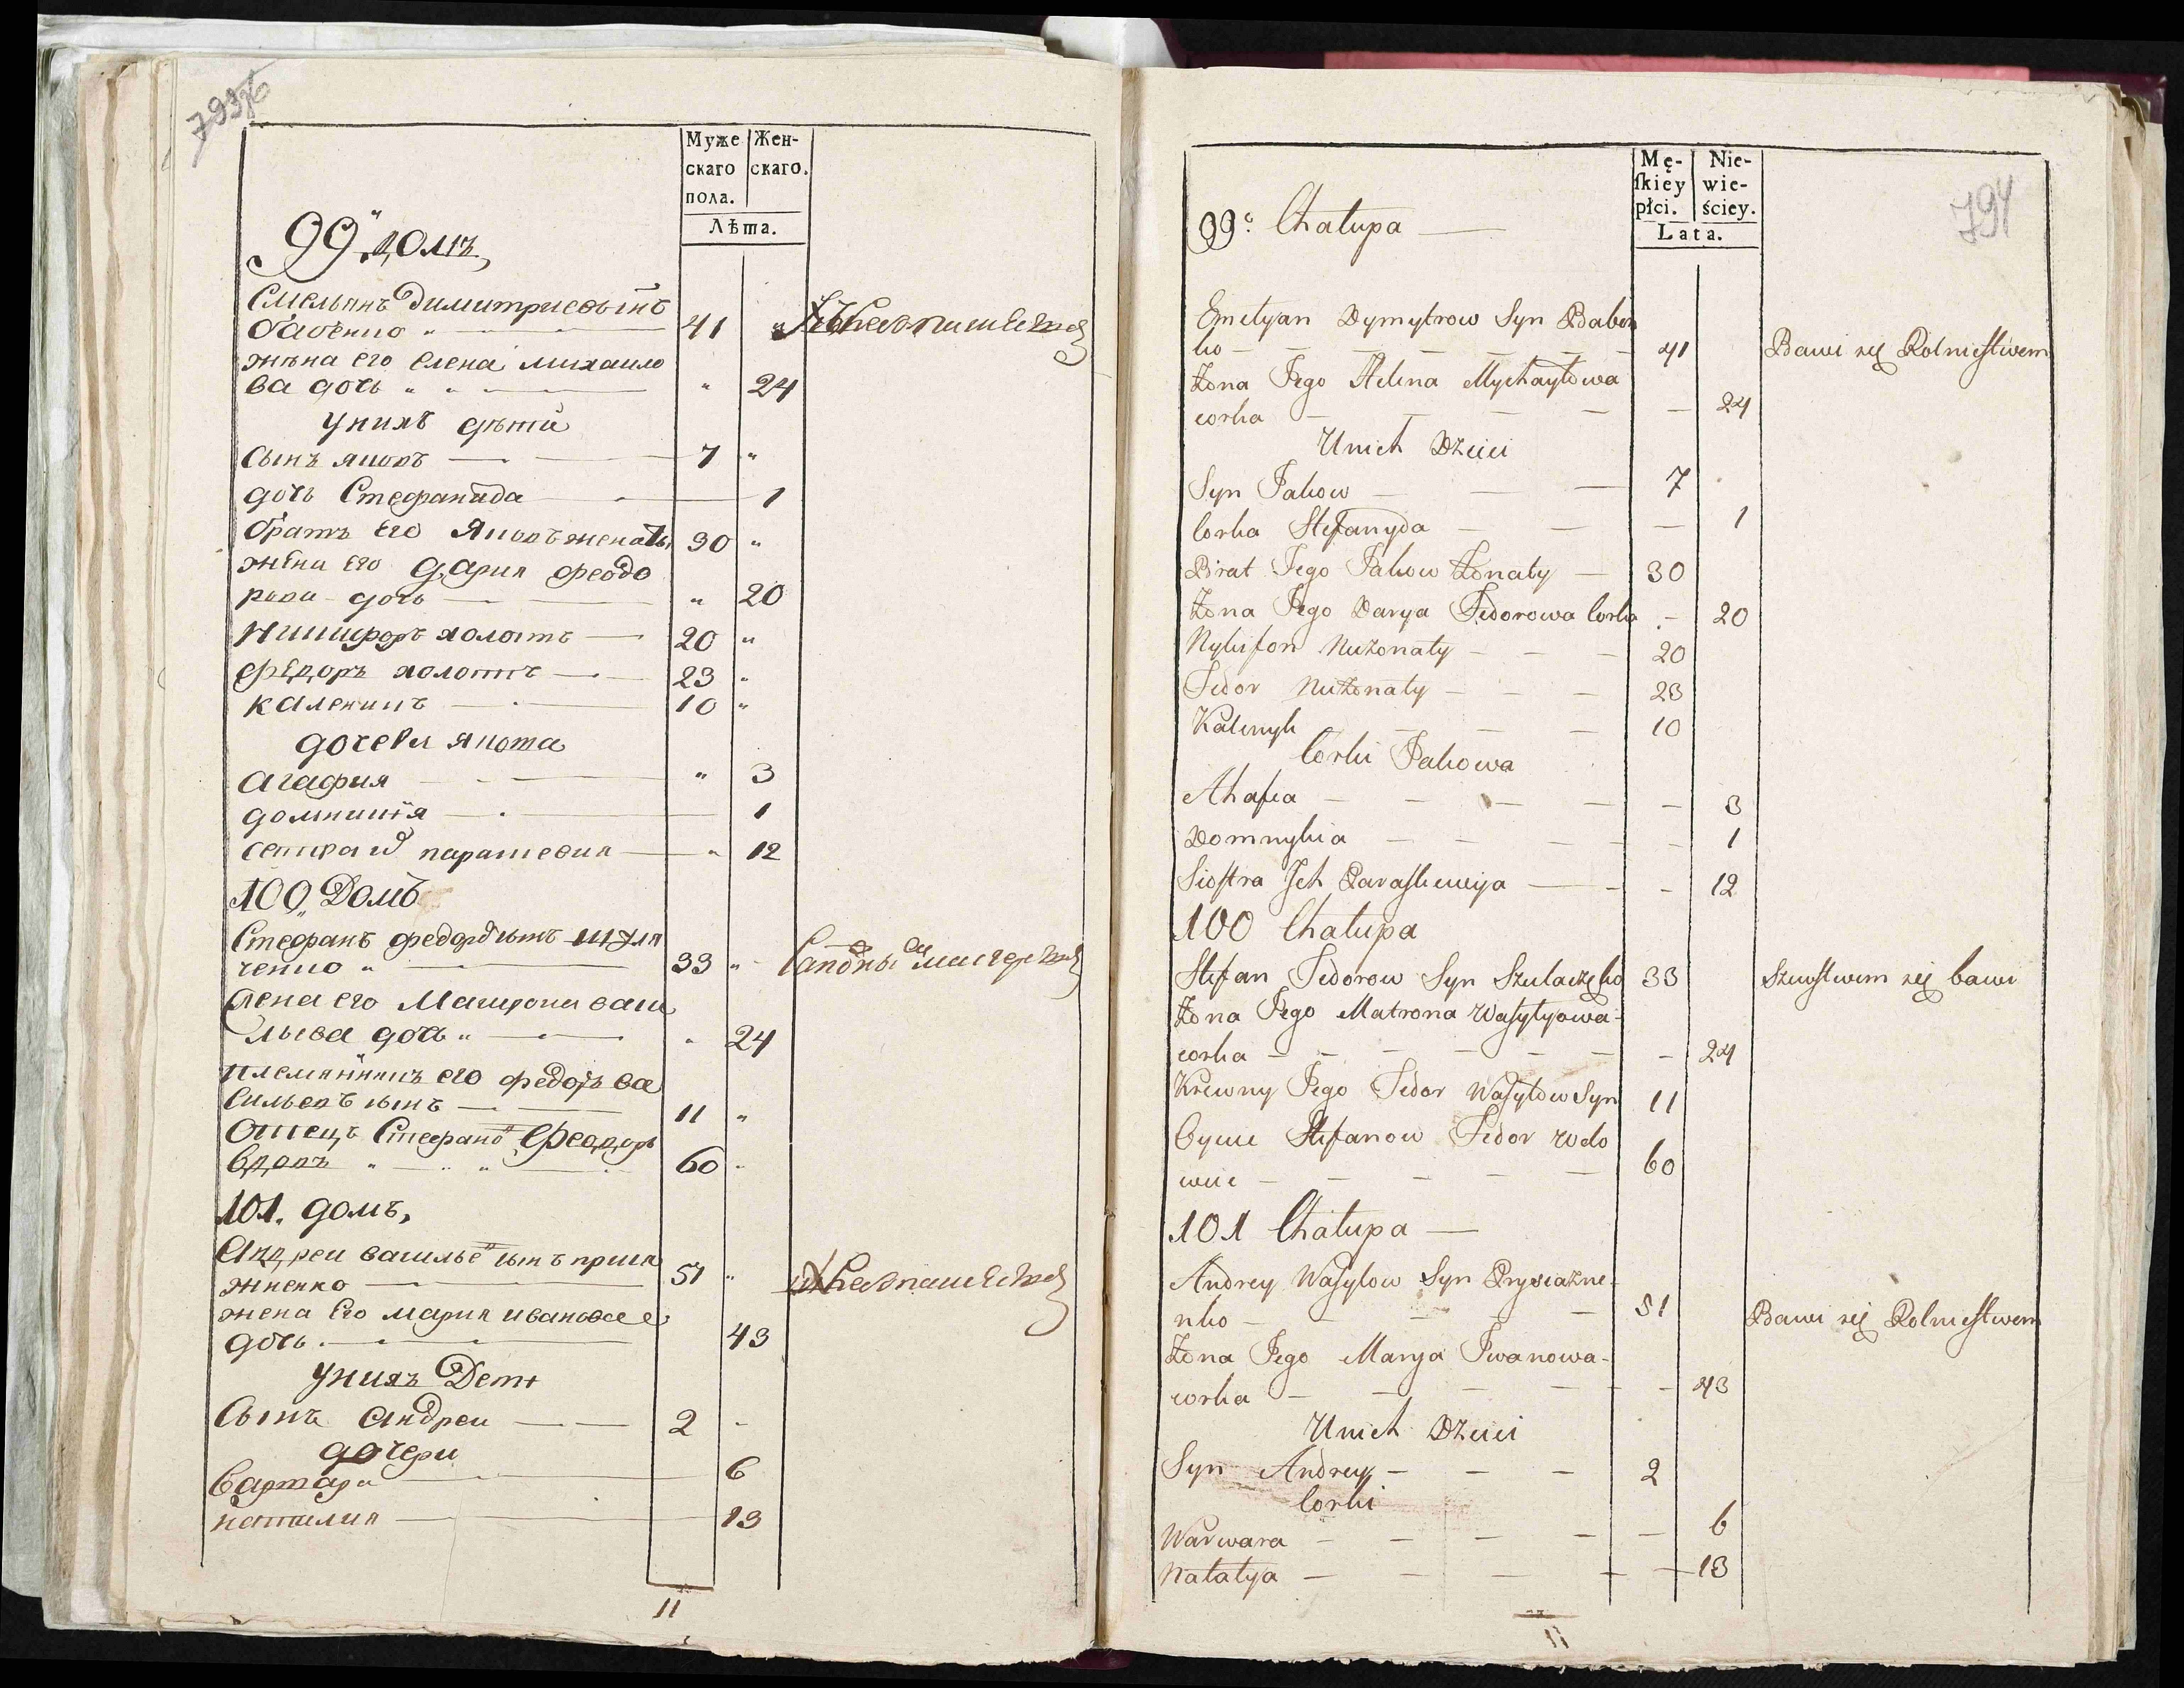 793об
Муже Жен-
скаго скаго.
пола.
Лѣта.
99й домъ,
Емельянъ Димитриевъ снъ
бабенко 41 „ Хлѣбопашествомъ
жена его елена михаило
ва дочь „ 24
у нихъ дѣти
сынъ яковъ 7 „
дочь Стефанида 1
братъ его Яковъ женатъ 30 „
жена его дария феодо
рова дочь „ 20
Никифоръ холостъ 20 „
федоръ холостъ 23 „
каленикъ 10 „
дочери якова
агафия „ 3
домникия 1
сестра их параскевия „ 12
100, Домъ
Стефанъ федоровъ сынъ шуля
ченко „ 33 „ Сапожнымъ мастерствомъ
жена его Матрона васи
льева дочь „ 24
племянникъ его федоръ ва
сильевъ сынъ 11 „
Отецъ Стефановъ Феодоръ
вдовъ „ 60 „
101. домъ,
Андреи васильевъ сынъ прися
жненко 51 „ Хлебопашествомъ
жена его мария иванова
дочь 43
у нихъ Дети
Сынъ андреи 2
дочери
варвара 6
наталия 13
11
Mę- Nie-
skiey wie-
płci. ściey.
Lata.
794
99a Chałupa
Emelyan Dymytrow Syn Baben
ko 41 Bawi się Rolnictwem
Żona Jego Helena Mychayłowa
corka 24
U nich Dzieci
Syn Jakow 7
Corka Stefanyda 1
Brat Jego Jakow Żonaty 30
Żona Jego Darya Fedorowa Corka 20
Nykifor Nieżonaty 20
Fedor Nieżonaty 23
Kalenyk 10
Corki Jakowa
Ahafia 3
Domnykia 1
Siostra Ich Paraskewija 12
100 Chałupa
Stefan Fedorow Syn Szulaczęko 33 Szewstwem się bawi
Żona Jego Matrona Wasylyowa
corka 24
Krewny Jego Fedor Wasylow Syn 11
Oyciec Stefanow Fedor wdo
wiec 60
101 Chałupa
Andrey Wasylow Syn Prysiażne-
nko 51 Bawi się Rolnictwem
Żona Jego Marya Iwanowa
corka 43
U nich Dzieci
Syn Andrey 2
Corki
Warwara 6
Natalya 13
11